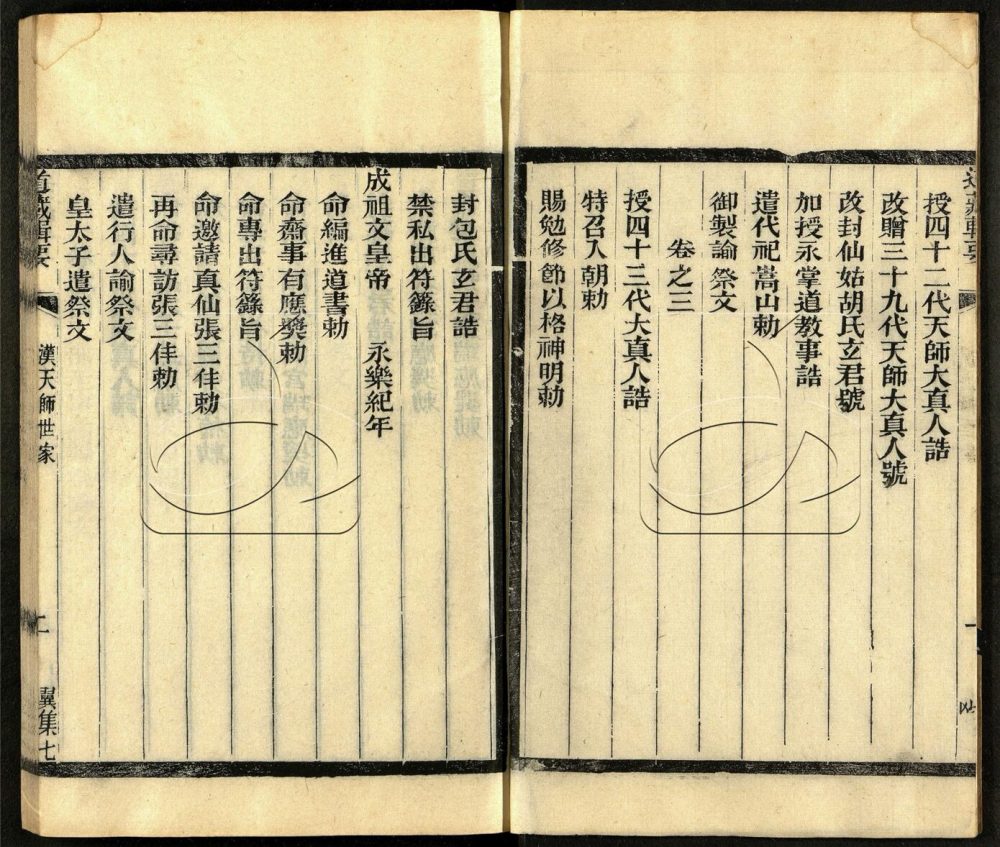 授四十二代天師大真人誥
改贈三十九代天師大真人號
改封仙姑胡氏玄君號
加授永掌道教事誥
遣代祀嵩山勅
御製諭祭文
卷之三
授四十三代大真人誥
特召入朝勅
賜勉修節以格神明勅
封包氏玄君誥
禁私出符籙旨
成祖文皇帝 永樂紀年
命編進道書勅
命齋事有應奬勅
命專出符籙旨
命邀請真仙張三仹勅
再命尋訪張三仹勅
遣行人諭祭文
皇太子遣祭文
道藏輯要 漢天師世家 二 翼集七